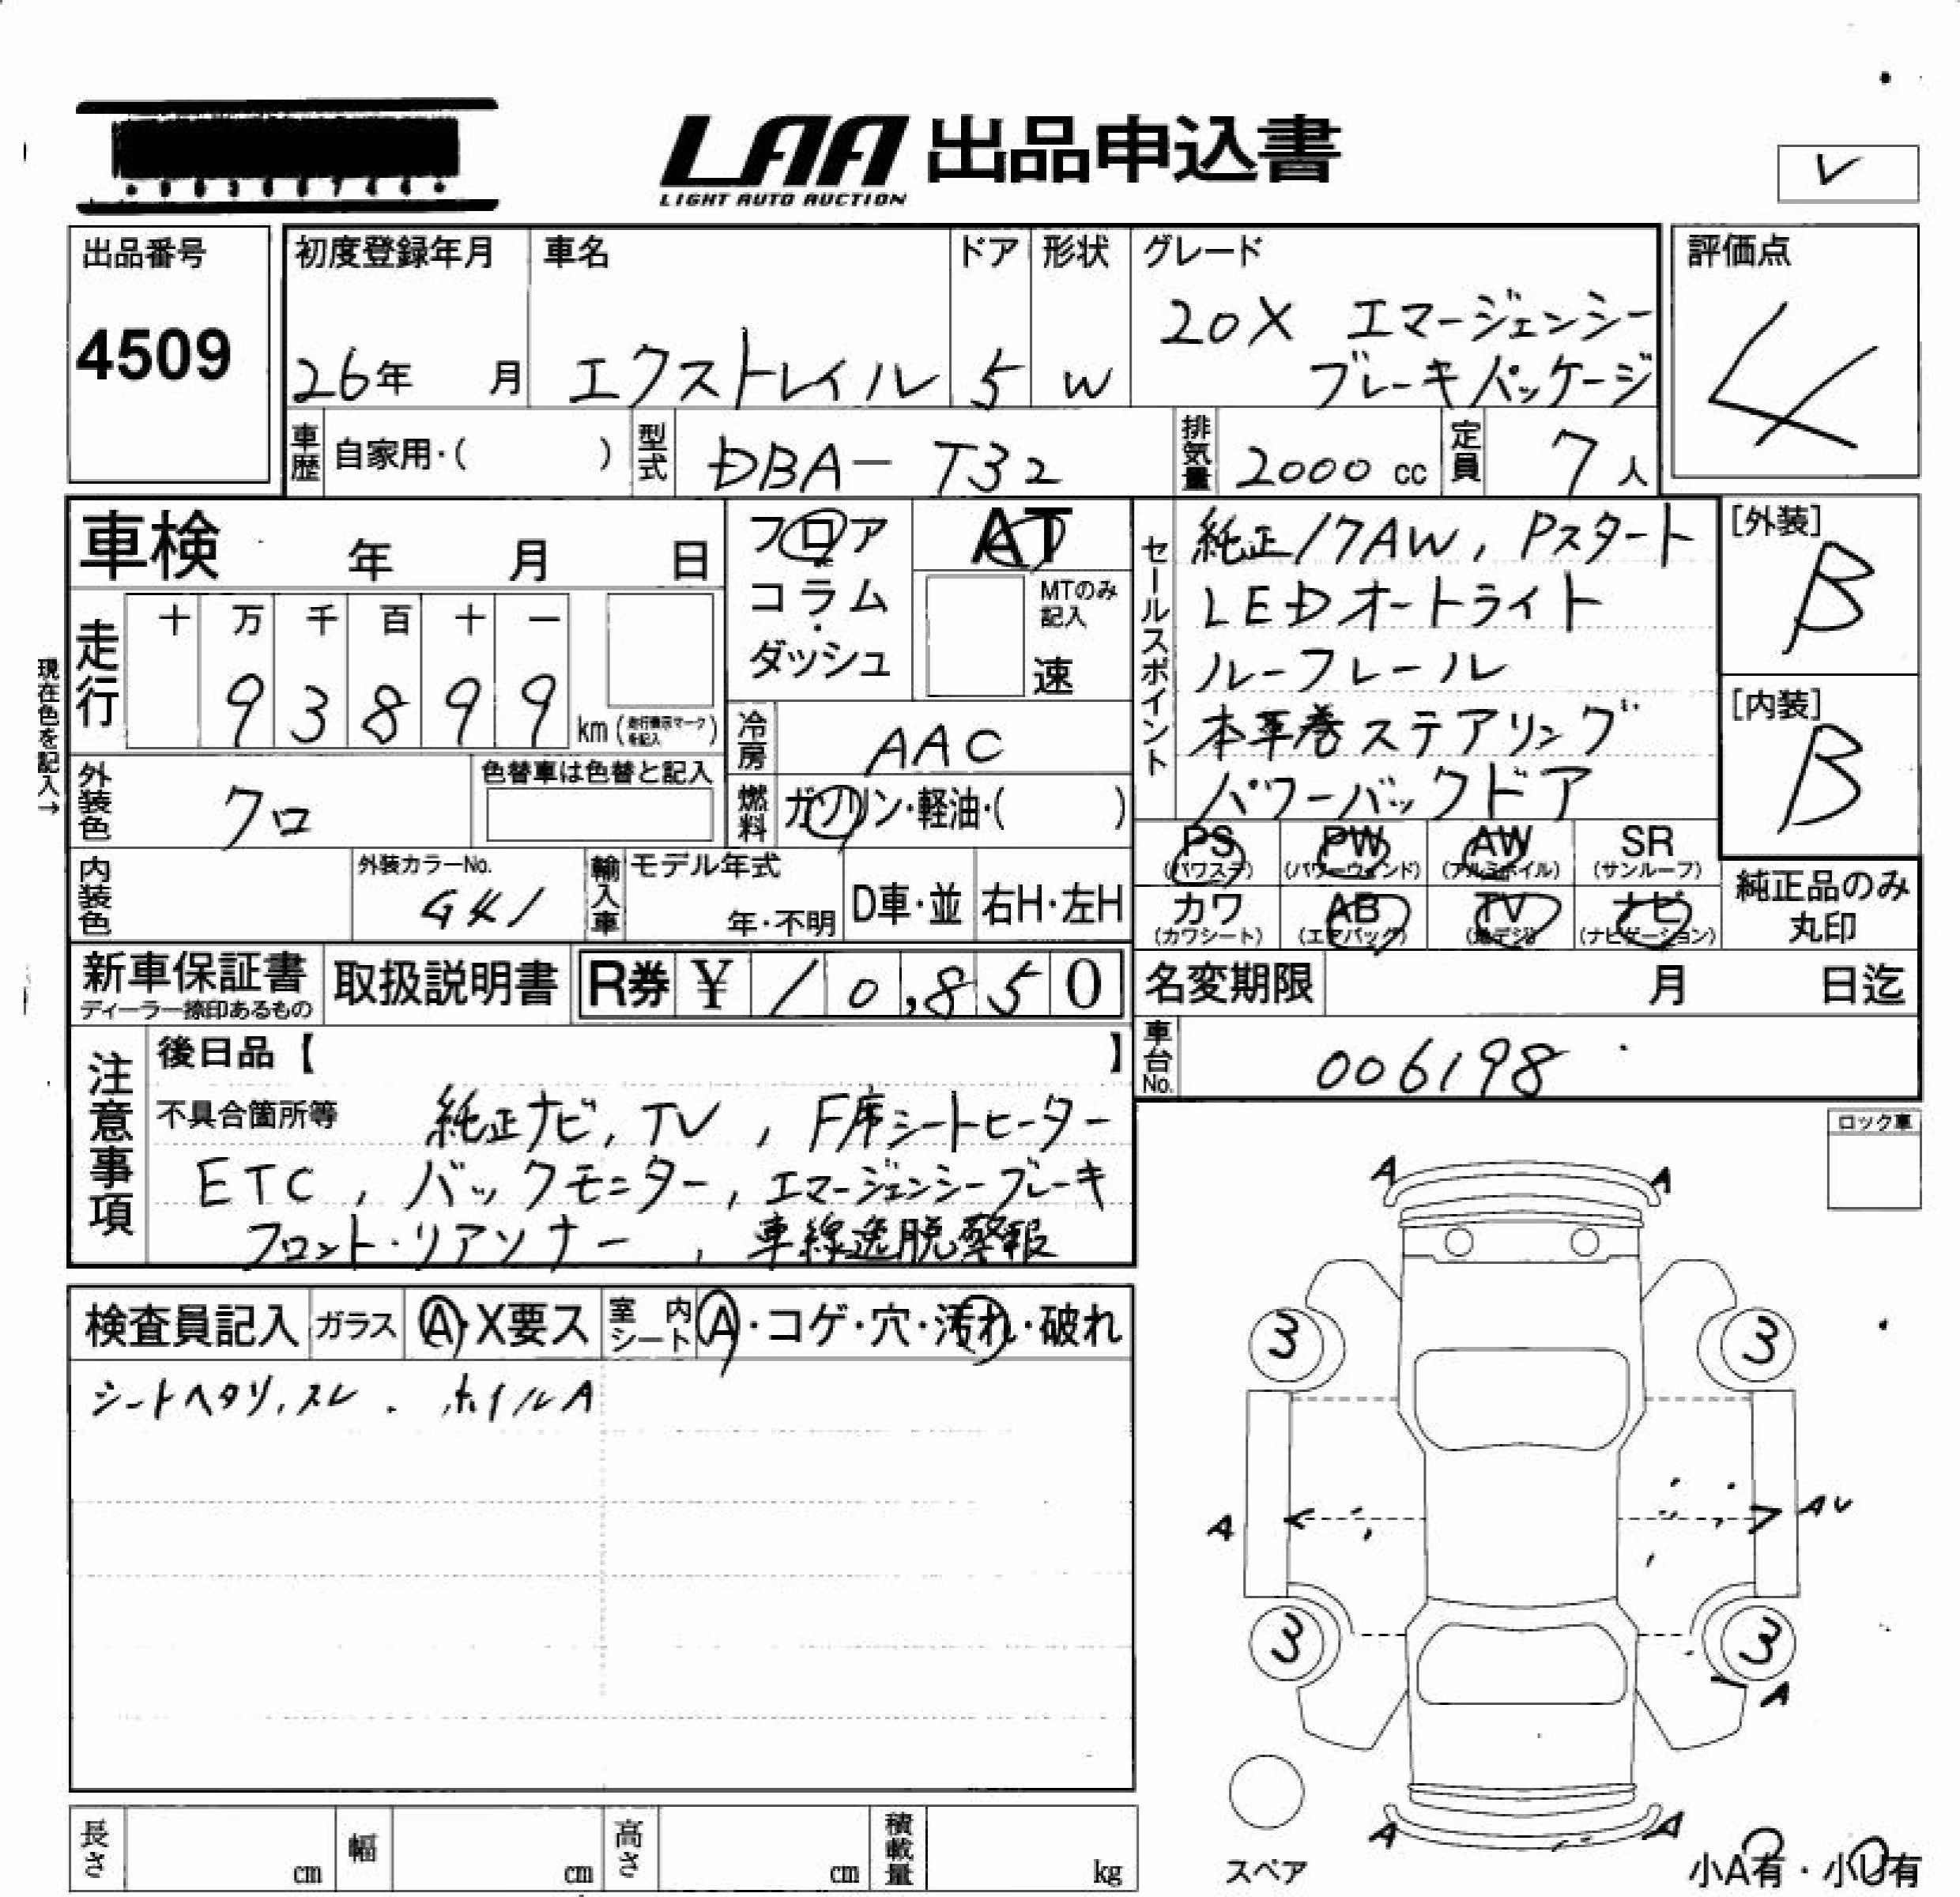 LAA 出品申込書
LIGHT AUTO AUCTION
レ
出品番号
4509
初度登録年月
26年 月
車名
エクストレイル
ドア
5
形状
W
グレード
20X エマージェンシー
ブレーキパッケージ
評価点
4
車歴 自家用・( )
型式 DBA-T32
排気量 2000 cc
定員 7人
車検 年 月 日
フロア
コラム
ダッシュ
AT
MTのみ
記入
速
走行
十 万 千 百 十 一
9 3 8 9 9
km (走行表示マークを記入)
現在色を記入→
冷房 AAC
燃料 ガソリン・軽油・( )
外装色 クロ
色替車は色替と記入
内装色
外装カラーNo.
GK1
輸入車
モデル年式
年・不明
D車・並
右H・左H
セールスポイント
純正17AW, Pスタート
LEDオートライト
ルーフレール
本革巻ステアリング
パワーバックドア
[外装]
B
[内装]
B
PS PW AW SR
(パワステ) (パワーウィンド) (アルミホイル) (サンルーフ)
カワ AB TV ナビ
(カワシート) (エアバッグ) (地デジ) (ナビゲーション)
純正品のみ
丸印
新車保証書
ディーラー捺印あるもの
取扱説明書
R券 ¥ 10,850
名変期限 月 日迄
車台No. 006198
注意事項
後日品【 】
不具合箇所等 純正ナビ, TV, F席シートヒーター
ETC, バックモニター, エマージェンシーブレーキ
フロント・リアソナー, 車線逸脱警報
ロック車
検査員記入 ガラス A・X要ス 室内シート A・コゲ・穴・汚れ・破れ
シートヘタリ,スレ. ホイルA
A A
3 3
A AU
3 3
A
A A
スペア
小A有・小U有
長さ cm 幅 cm 高さ cm 積載量 kg